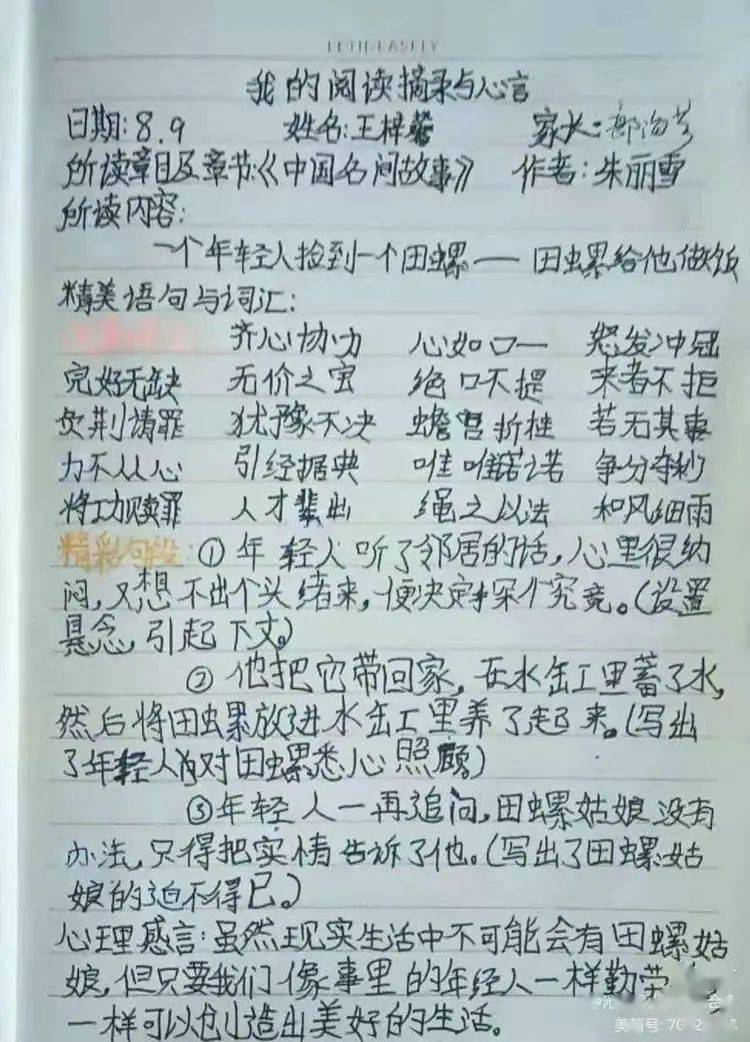 我的阅读摘录与心言
日期:8.9 姓名:王梓馨 家长:
所读章目及章节:《中国名间故事》 作者:朱丽雪
所读内容:
一个年轻人捡到一个田螺——田螺给他做饭
精美语句与词汇:
齐心协力 心如口一 怒发冲冠
完好无缺 无价之宝 绝口不提 来者不拒
负荆请罪 犹豫不决 蟾宫折挂 若无其事
力不从心 引经据典 唯唯诺诺 争分夺秒
将功赎罪 人才辈出 绳之以法 和风细雨
精彩句段:①年轻人听了邻居的话,心里很纳
闷,又想不出个头绪来,便决定探个究竟。(设置
悬念,引起下文。)
②他把它带回家,在水缸里蓄了水,
然后将田螺放进水缸里养了起来。(写出
了年轻人对田螺悉心照顾)
③年轻人一再追问,田螺姑娘没有
办法,只得把实情告诉了他。(写出了田螺姑
娘的迫不得已。)
心理感言:虽然现实生活中不可能会有田螺姑
娘,但只要我们像事里的年经人一样勤劳
一样可以创造出美好的生活。
美简号:70